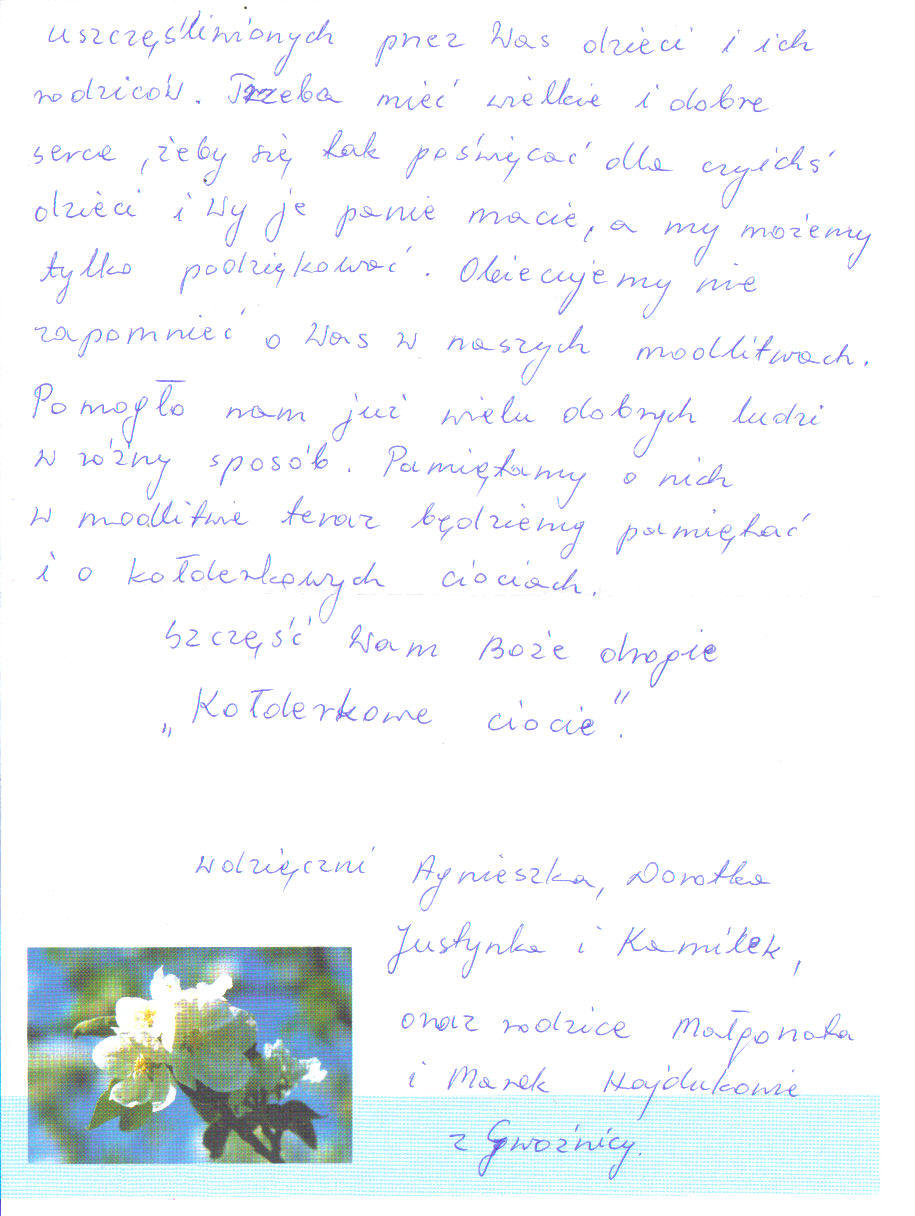 uszczęśliwionych przez Was dzieci i ich
rodziców. Trzeba mieć wielkie i dobre
serce, żeby się tak poświęcać dla czyichś
dzieci i Wy je panie macie, a my możemy
tylko podziękować. Obiecujemy nie
zapomnieć o Was w naszych modlitwach.
Pomogło nam już wielu dobrych ludzi
w różny sposób. Pamiętamy o nich
w modlitwie teraz będziemy pamiętać
i o kołderkowych ciociach.
Szczęść Wam Boże drogie
„Kołderkowe ciocie”.
wdzięczni Agnieszka, Dorotka
Justynka i Kamilek,
oraz rodzice Małgorzata
i Marek Hajdukowie
z Gwoźnicy.